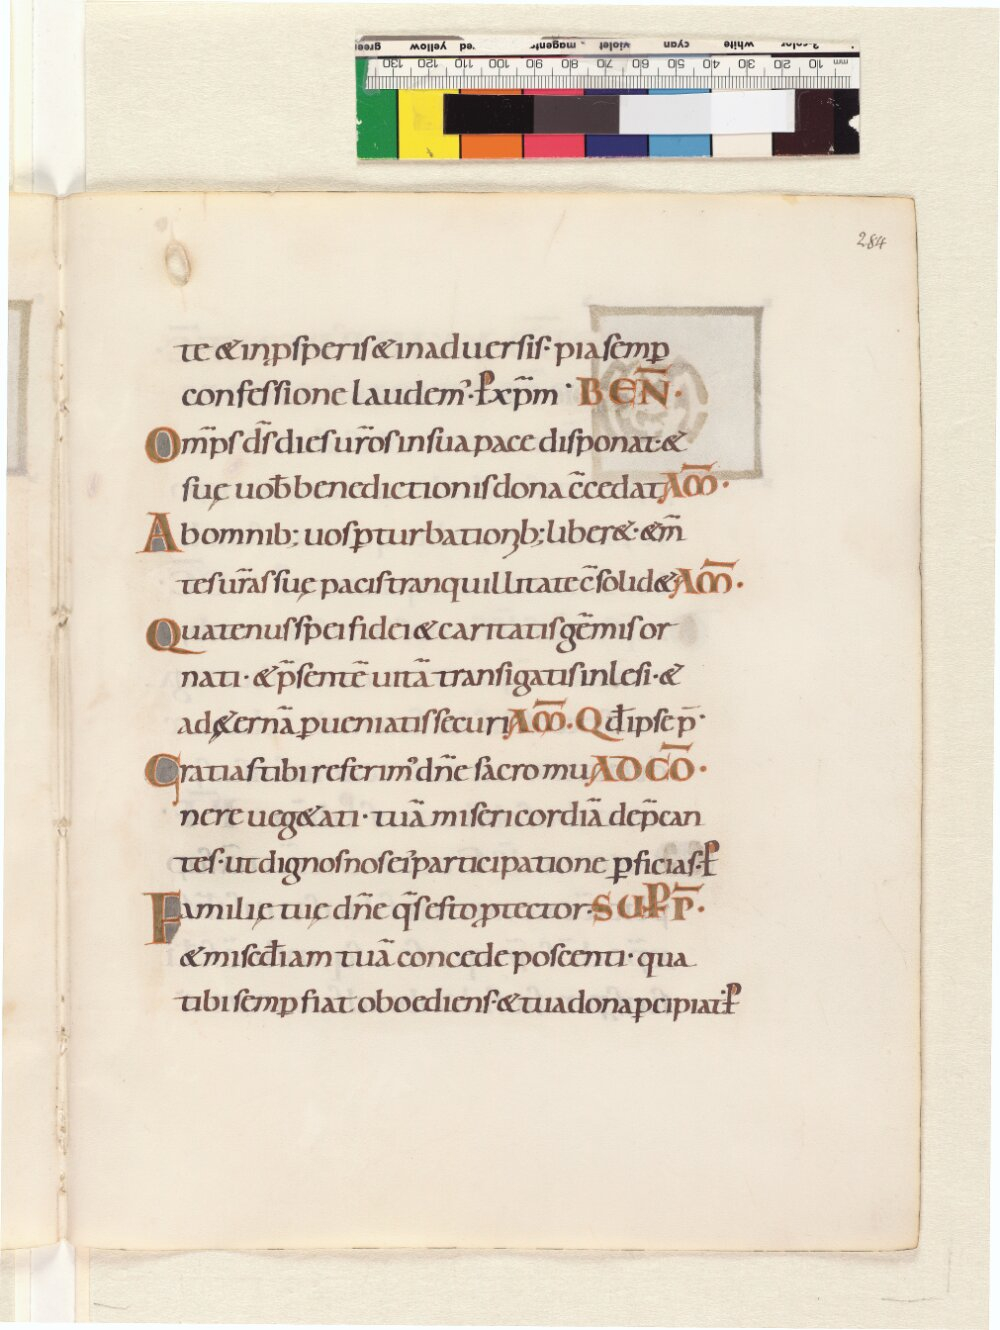 284
te & inꝓsperis & inaduersis· pia semꝑ
confessione laudem᾽· P̵ xp̄m· BEN̄·
Om̄ps d̄s dies ur̄os insua pace disponat· &
suę uob̄ benedictionis dona c̄cedat AM̄·
Ab omnib; uos ꝑturbationib; liber&· & m̄
tes ur̄as suę pacis tranquillitate c̄solid& AM̄·
Quatenus spei fidei & caritatis gēmis or
nati· & p̄sentē uitā transigatis inlesi· &
ad &ernā ꝑueniatis securi AM̄. Qđ ipse p̄·
Gratias tibi referim᾽ dn̄e sacro mu AD CŌ·
nere ueg&ati· tuā misericordiā dep̄can
tes· ut dignos nos ei᾽ participatione ꝑficias· P̵
Familię tuę dn̄e q̄s esto ꝓtector· SUP P̄·
& miscđiam tuā concede poscenti· qua
tibi semꝑ fiat oboediens· & tua dona ꝑcipiat· P̵